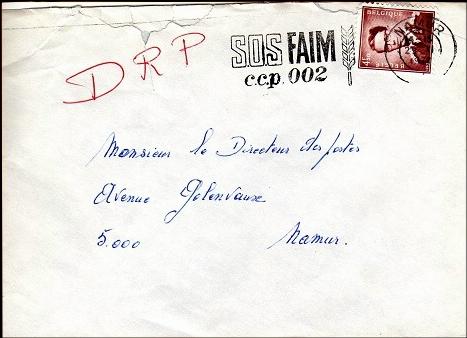 DRP
SOS FAIM
c.c.p. 002
BELGIQUE
BELGIE
Monsieur le Directeur des postes
Avenue Golenvaux
5.000 Namur.